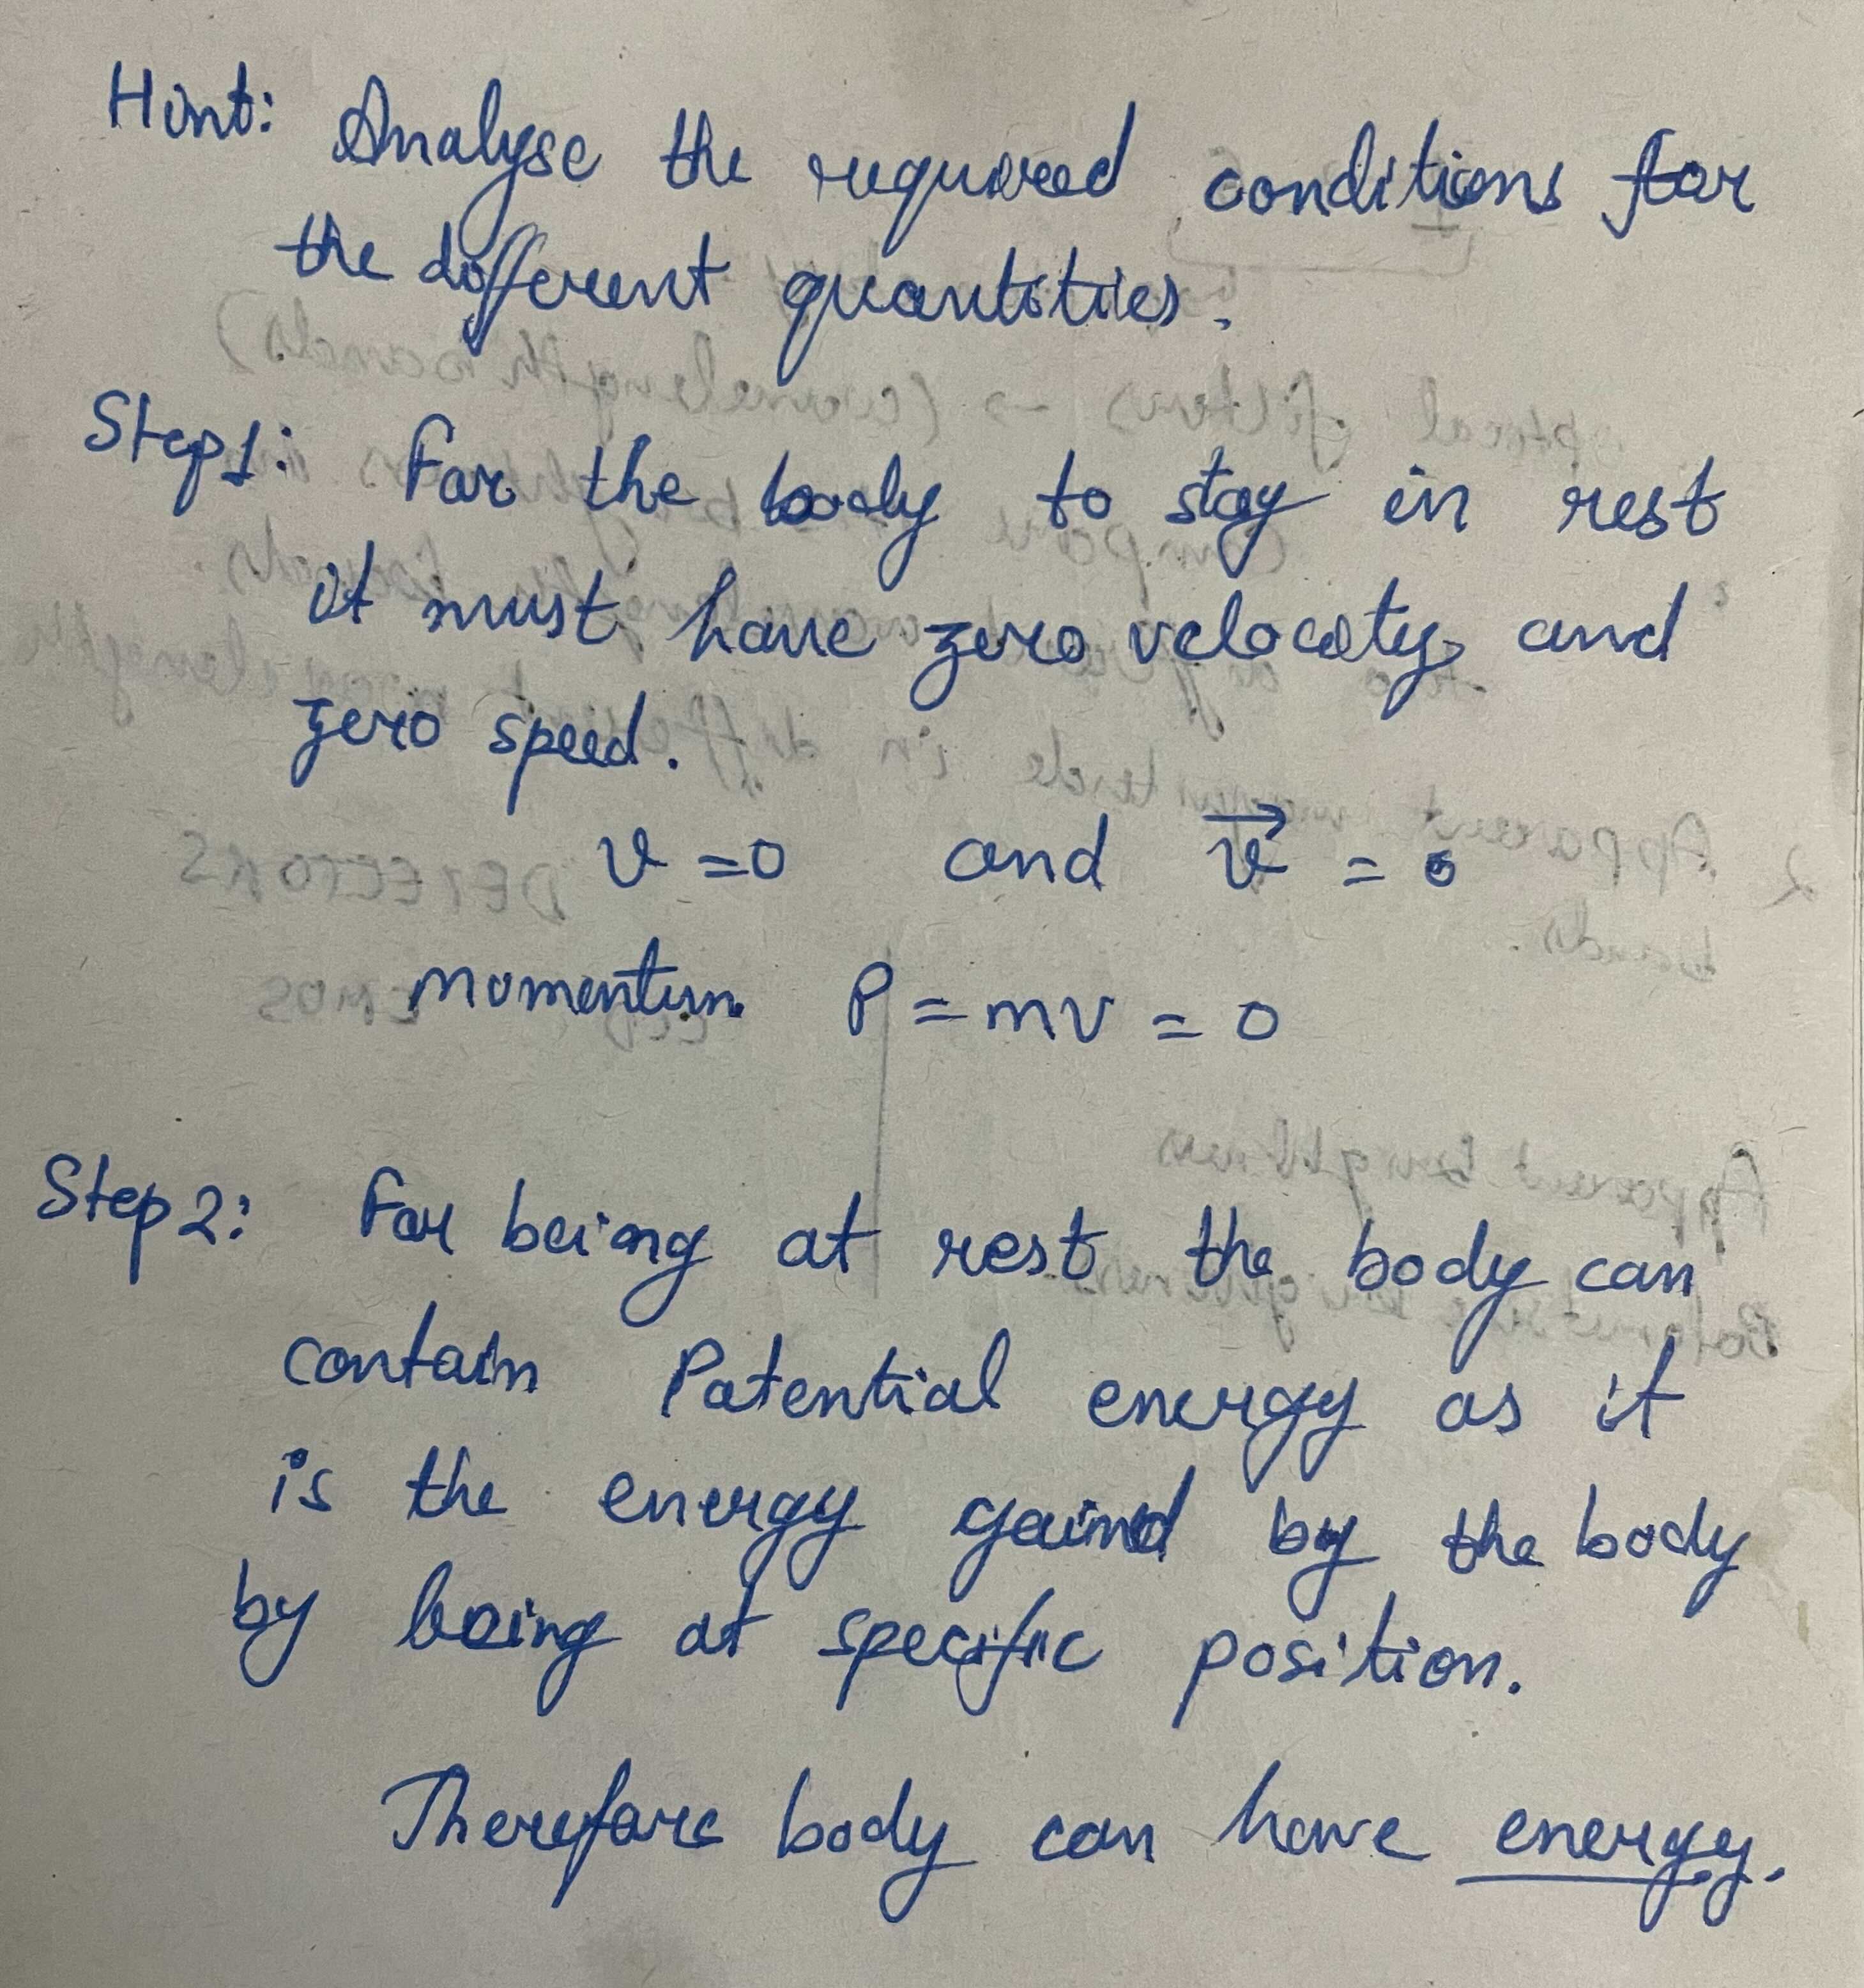 Hint: Analyse the required conditions for
the different quantities.
Step1: For the body to stay in rest
it must have zero velocity and
zero speed.
v = 0 and v⃗ = 0
Momentum P = mv = 0
Step 2: For being at rest the body can
contain Potential energy as it
is the energy gained by the body
by being at specific position.
Therefore body can have energy.